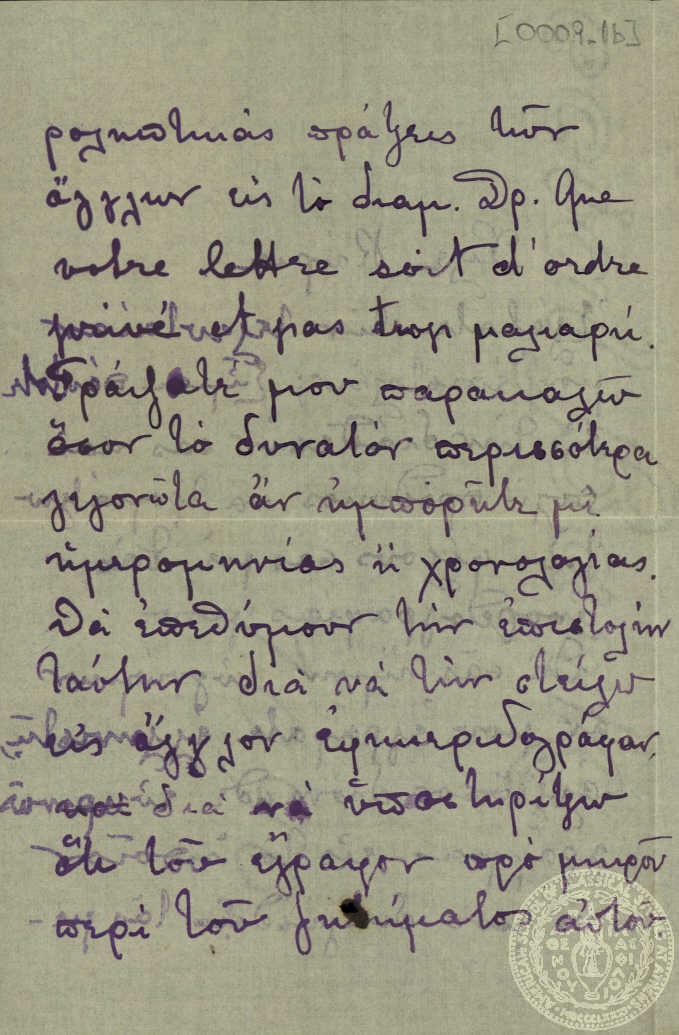 [0009_1b]
πράξεις τῶν
Ἄγγλων εἰς τὸ διαμ. Δρ. Que
votre lettre soit d'ordre
privé et μας
Γράψατέ μου παρακαλῶ
ὅσον τὸ δυνατὸν περισσότερα
γεγονότα ἂν ἠμπορῆτε μὲ
ἡμερομηνίας ἢ χρονολογίας.
Θὰ ἐπεθύμουν τὴν ἐπιστολὴν
ταύτην διὰ νὰ τὴν στείλω
εἰς Ἄγγλον ἐφημεριδογράφον,
καὶ διὰ νὰ ὑποστηρίξω
ὅτι τοῦ ἔγραφον πρὸ μικροῦ
περὶ τοῦ ζητήματος αὐτοῦ.